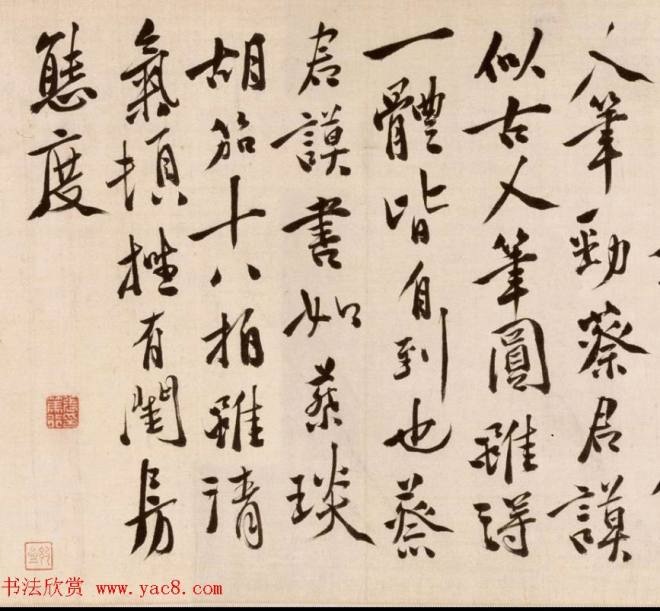 人筆勁蔡君謨
似古人筆圓雖得
一體皆自到也蔡
君謨書如蔡琰
胡笳十八拍雖清
氣頓挫有閨房
態度
书法欣赏 www.yac8.com